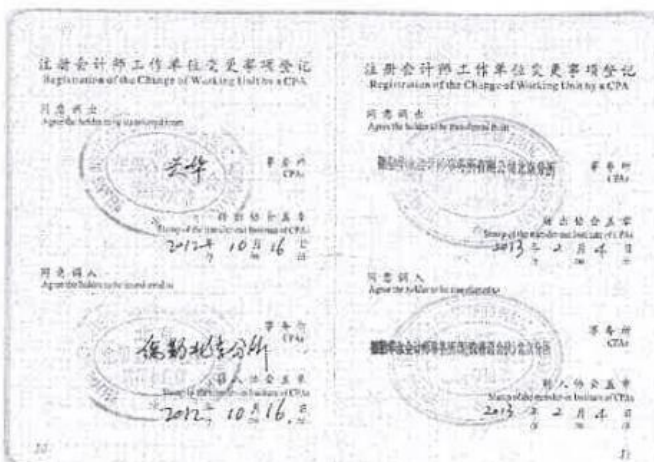 注册会计师工作单位变更事项登记
Registration of the Change of Working Unit by a CPA
同意调出
Agree the holder to be transferred from
兴华
事务所
CPAs
转出协会盖章
Stamp of the transfer-out Institute of CPAs
2012年 10月 16日
同意调入
Agree the holder to be transferred to
德勤北京分所
事务所
CPAs
转入协会盖章
Stamp of the transfer-in Institute of CPAs
2012年 10月 16日
10
注册会计师工作单位变更事项登记
Registration of the Change of Working Unit by a CPA
同意调出
Agree the holder to be transferred from
德勤华永会计师事务所有限公司北京分所
事务所
CPAs
转出协会盖章
Stamp of the transfer-out Institute of CPAs
2013年 2月 4日
同意调入
Agree the holder to be transferred to
德勤华永会计师事务所(特殊普通合伙)北京分所
事务所
CPAs
转入协会盖章
Stamp of the transfer-in Institute of CPAs
2013年 2月 4日
11